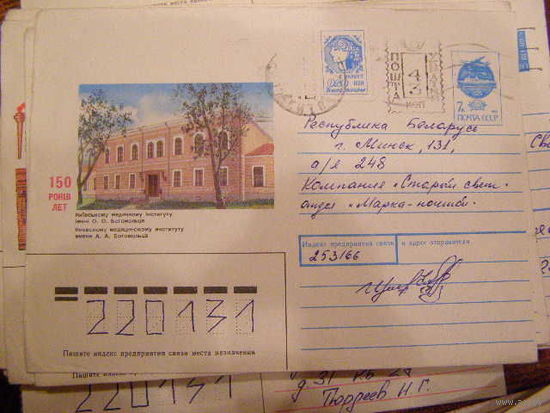 7к
ПОЧТА СССР
ПОШТА
43
Республика Беларусь
г. Минск, 131,
а/я 248
Компания «Старый свет»
отдел «Марка-почтой»
150
РОКІВ
ЛЕТ
Київському медичному інституту
імені О. О. Богомольця
Киевскому медицинскому институту
имени А. А. Богомольца
Индекс предприятия связи и адрес отправителя
253166
220131
Пишите индекс предприятия связи места назначения
220131
Гордеев Н. Г.